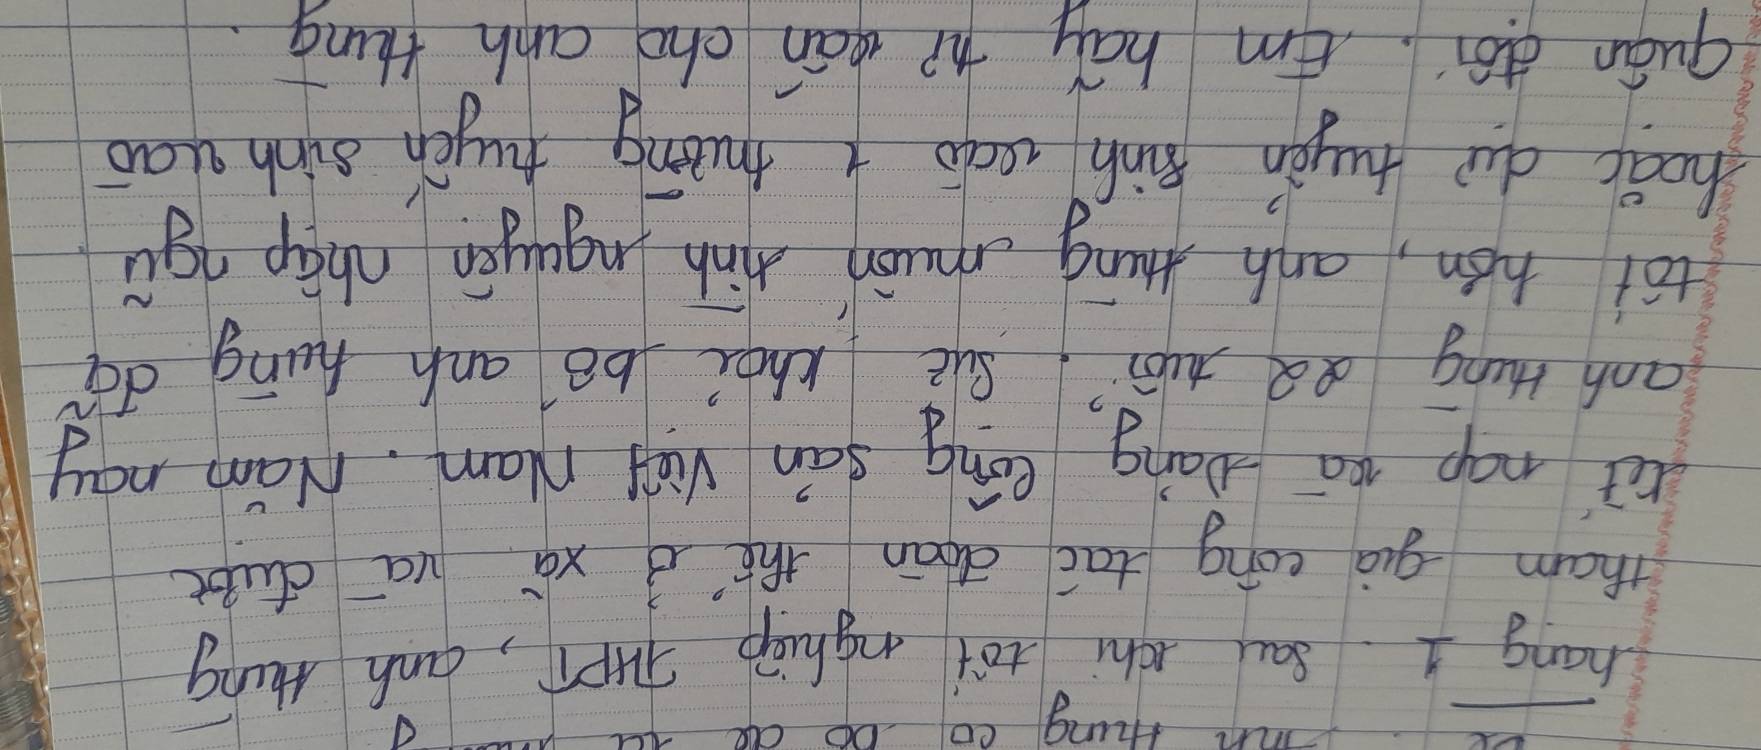 Thung có bố
hạng 1. Sau khi tốt nghiệp THPT, anh Hùng
tham gia công tác đoàn thể ở xã và được
kết nạp và Đảng Cộng sản Việt Nam. Năm nay
anh Hùng 22 tuổi. Sức khỏe bố anh hùng đã
tốt hơn, anh Hùng muốn tình nguyện nhập ngũ
hoặc dự tuyển sinh vào 1 trường tuyển sinh vào
quân đội. Em hãy tư vấn cho anh Hùng.